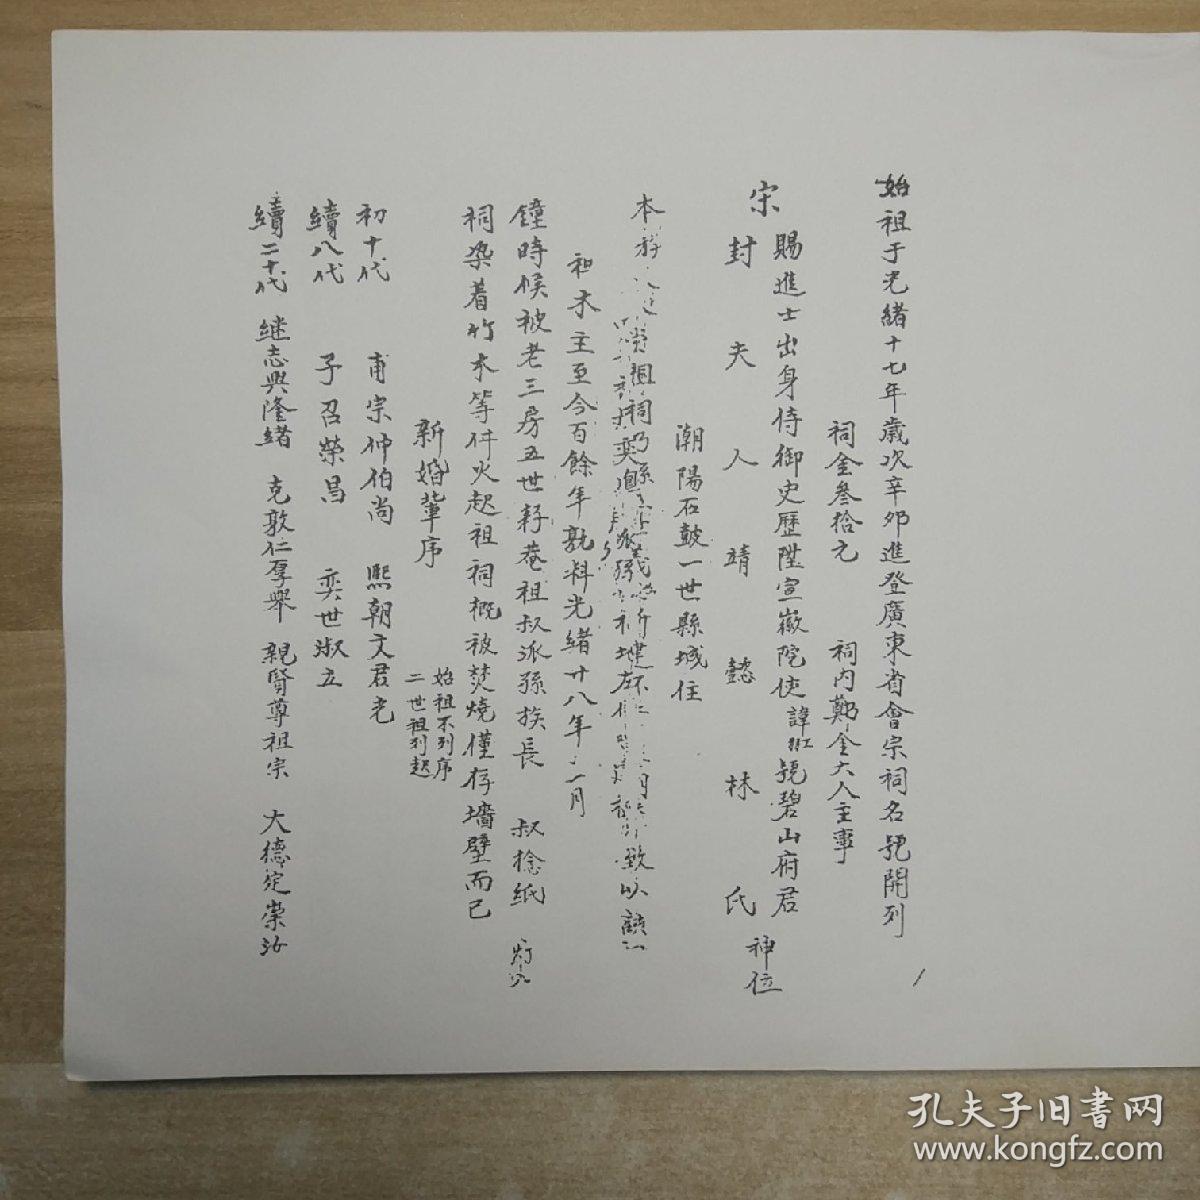 始祖于光緒十七年歲次辛夘進登廣東省會宗祠名號開列
祠金叁拾元 祠内鄭金大人主事
宋
賜進士出身侍御史歷陞宣徽院使諱 號碧山府君
封夫人靖懿林氏
神位
潮陽石鼓一世縣城住
本族 祖祠乃縣 新建 致以
和木主至今百餘年孰料光緒廿八年 月
鐘時候被老三房五世耔菴祖叔派孫族長 叔捻紙
祠染着竹木等件火起祖祠概被焚燒僅存墻壁而已
新婚輩序
始祖不列序
二世祖列起
初十代 甫宗仲伯尚 熙朝文君光
續八代 子召榮昌 奕世淑立
續二十代 继志興隆緒 克敦仁厚舉 親賢尊祖宗 大德定崇
孔夫子旧书网
www.kongfz.com